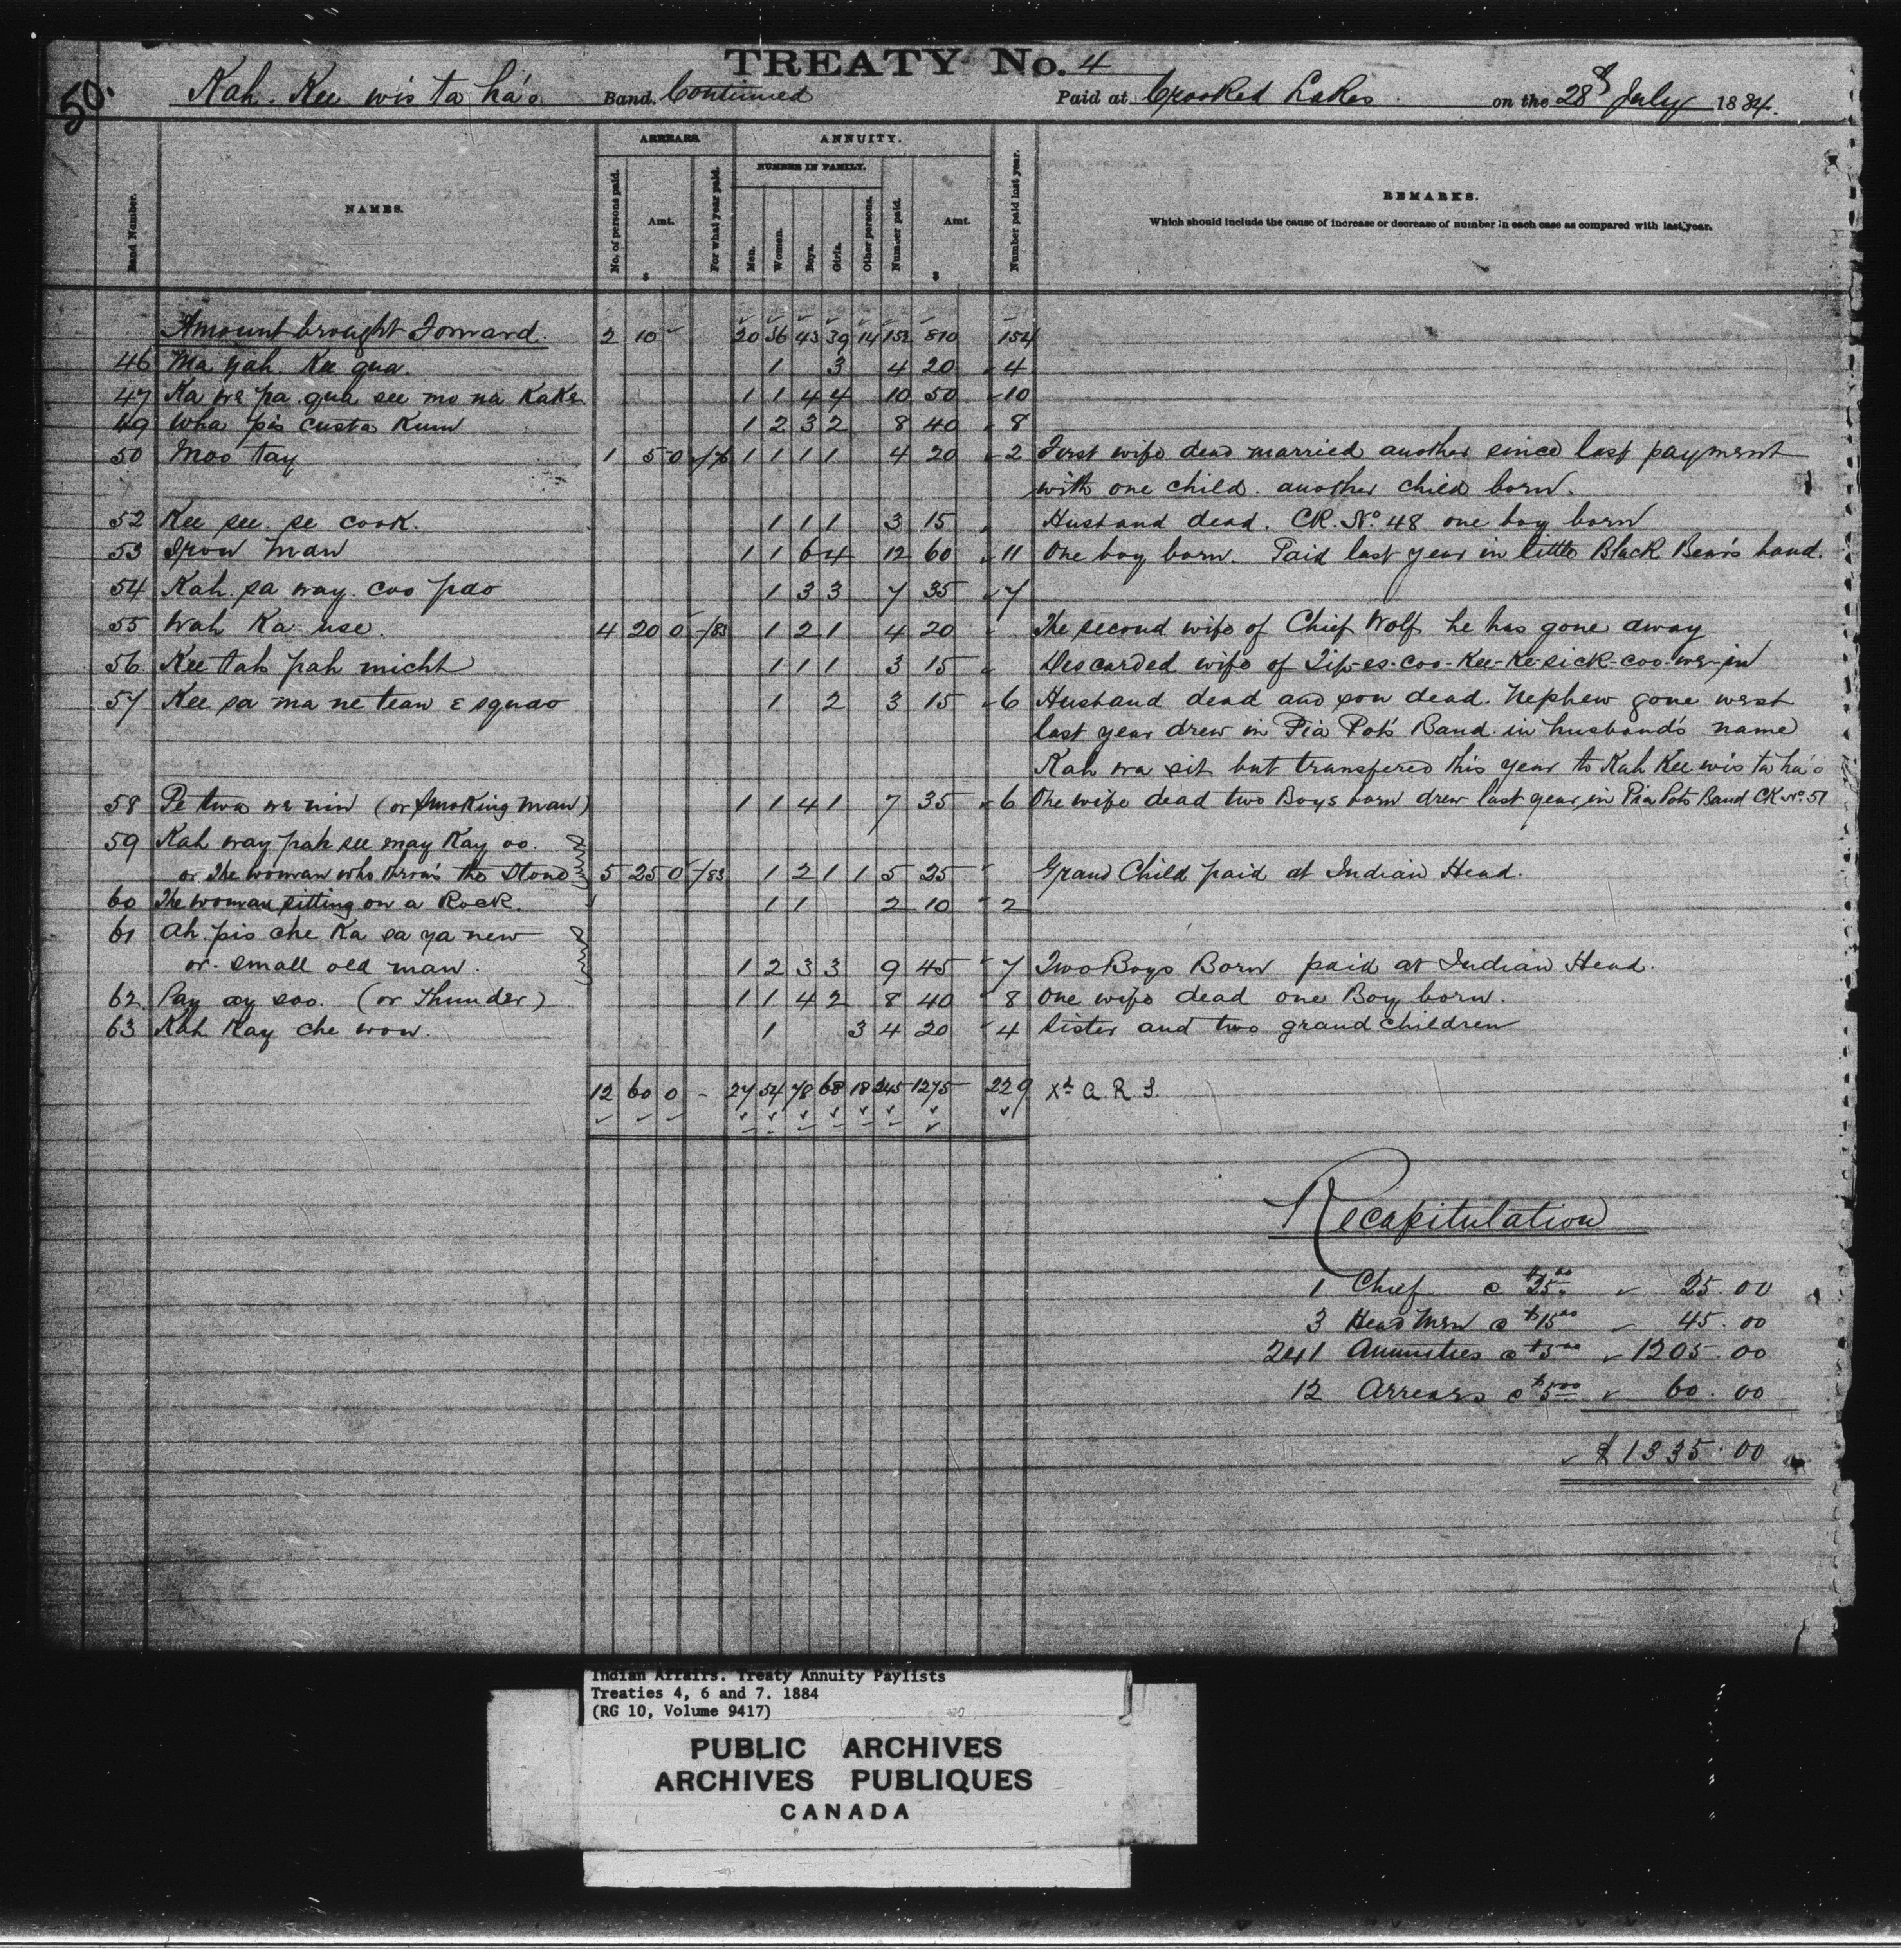 TREATY No. 4
50.
Kah. Kee wis ta há'o Band. Continued Paid at Crooked Lakes. on the 28 July 1884.
ARREARS. ANNUITY.
NUMBER IN FAMILY.
Band Number. NAMES. No. of persons paid. Amt. $ For what year paid. Men. Women. Boys. Girls. Other persons. Number paid. Amt. $ Number paid last year. REMARKS.
Which should include the cause of increase or decrease of number in each case as compared with last year.
Amount brought Forward. 2 10 20 36 43 39 14 152 810 154
46 Ma yah. Kee qua. 1 3 4 20 4
47 Ka we pa qua see mo na Kake 1 1 4 4 10 50 10
49 Wha pis custa Kum 1 2 3 2 8 40 8
50 Moo tay 1 5 0 1 1 1 1 4 20 2 First wife dead married another since last payment
with one child. another child born.
52 Kee see. se cook. 1 1 1 3 15 Husband dead. CK. No. 48 one boy born
53 Iron Man 1 1 6 4 12 60 11 One boy born. Paid last year in little Black Bear's band.
54 Kah. sa way. coo pao 1 3 3 7 35 7
55 Wah Ka use. 4 20 0 /83 1 2 1 4 20 The second wife of Chief Wolf he has gone away
56. Kee tah pah micht 1 1 1 3 15 Discarded wife of Tip-es-coo-Kee-Ke-sick-coo-we-in
57 Kee sa ma ne teaw E squao 1 2 3 15 6 Husband dead and son dead. Nephew gone west
last year drew in Pia Pot's Band in husband's name
Kah wa sit but transfered this year to Kah Kee wis ta há'o
58 Pe twa we nin (or Smoking man) 1 1 4 1 7 35 6 One wife dead two Boys born drew last year in Pia Pots Band CK No. 51
59 Kah way pah see may Kay oo.
or The woman who throws the Stone 5 25 0 /83 1 2 1 1 5 25 Grand Child paid at Indian Head.
60 The woman sitting on a Rock. 1 1 2 10 2
61 Ah. pis che Ka sa ya new
or. small old man. 1 2 3 3 9 45 7 Two Boys Born paid at Indian Head.
62. Pay ay soo. (or Thunder) 1 1 4 2 8 40 8 One wife dead one Boy born.
63 Kah Kay che wow. 1 3 4 20 4 Sister and two grand children
12 60 0 - 27 54 78 68 18 245 1275 229 Xd A. R. S.
Recapitulation
1 Chief @ $25.00 25.00
3 Head Men @ $15.00 45.00
241 Annuities @ $5.00 1205.00
12 Arrears @ $5.00 60.00
$1335.00
Indian Affairs. Treaty Annuity Paylists
Treaties 4, 6 and 7. 1884
(RG 10, Volume 9417)
PUBLIC ARCHIVES
ARCHIVES PUBLIQUES
CANADA